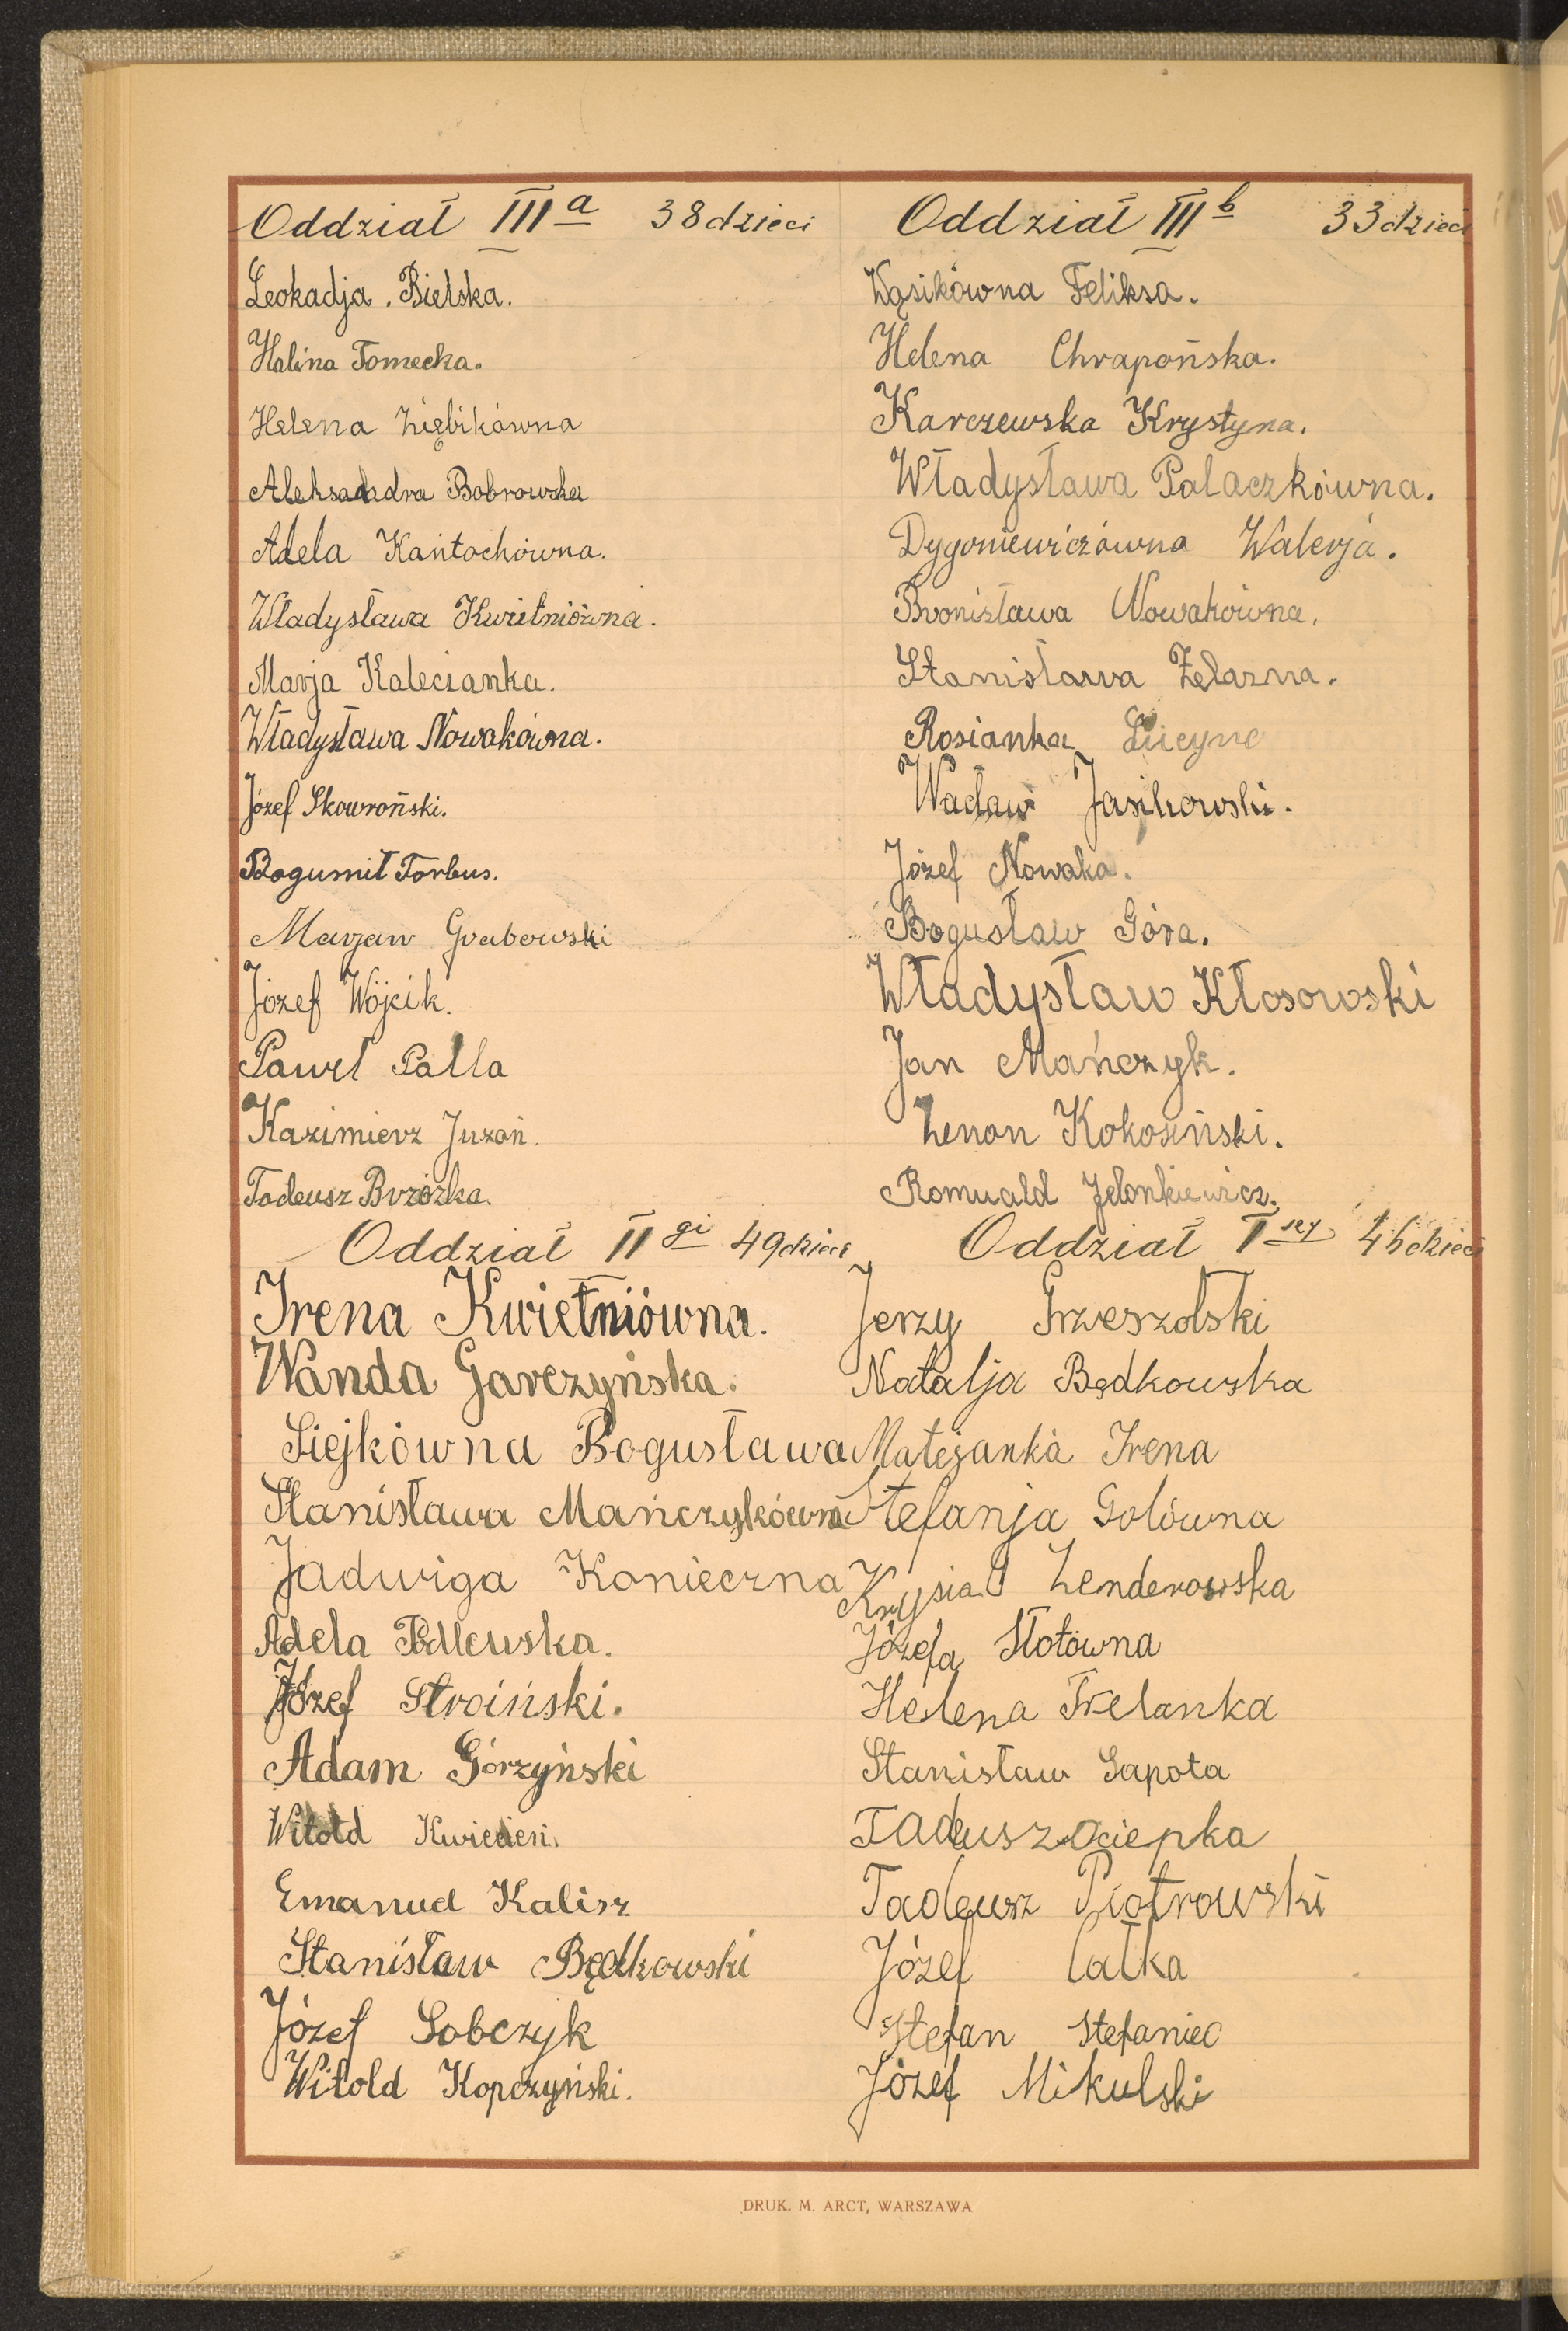 Oddział III a 38 dzieci
Leokadja Bielska.
Halina Tomecka.
Helena Ziębikówna
Aleksandra Bobrowska
Adela Kańtochówna.
Władysława Kwietniówna.
Marja Kalecianka.
Władysława Nowakówna.
Józef Skowroński.
Bogumił Torbus.
Marjan Grabowski
Józef Wójcik.
Paweł Palla
Kazimierz Juzoń.
Tadeusz Brzózka.
Oddział III b 33 dzieci
Wąsikówna Feliksa.
Helena Chrapońska.
Karczewska Krystyna.
Władysława Palaczkówna.
Dygoniewiczówna Walerja.
Bronisława Nowakówna.
Stanisława Żelazna.
Rosianka Lucyna
Wacław Jasikowski.
Józef Nowaka.
Bogusław Góra.
Władysław Kłosowski
Jan Mańczyk.
Zenon Kokosiński.
Romuald Jelonkiewicz.
Oddział II gi 49 dzieci
Irena Kwietniówna.
Wanda Garczyńska.
Siejkówna Bogusława
Stanisława Mańczykówna
Jadwiga Konieczna
Adela Podlewska.
Józef Stroiński.
Adam Górzyński
Witold Kwiecień.
Emanuel Kalisz
Stanisław Będkowski
Józef Sobczyk
Witold Kopczyński.
Oddział I szy 46 dzieci
Jerzy Grzeszolski
Natalja Będkowska
Matejanka Irena
Stefanja Golówna
Krysia Zenderowska
Józefa Słotówna
Helena Trelanka
Stanisław Sapota
Tadeusz Ociepka
Tadeusz Piotrowski
Józef Całka
Stefan Stefaniec
Józef Mikulski
DRUK. M. ARCT, WARSZAWA